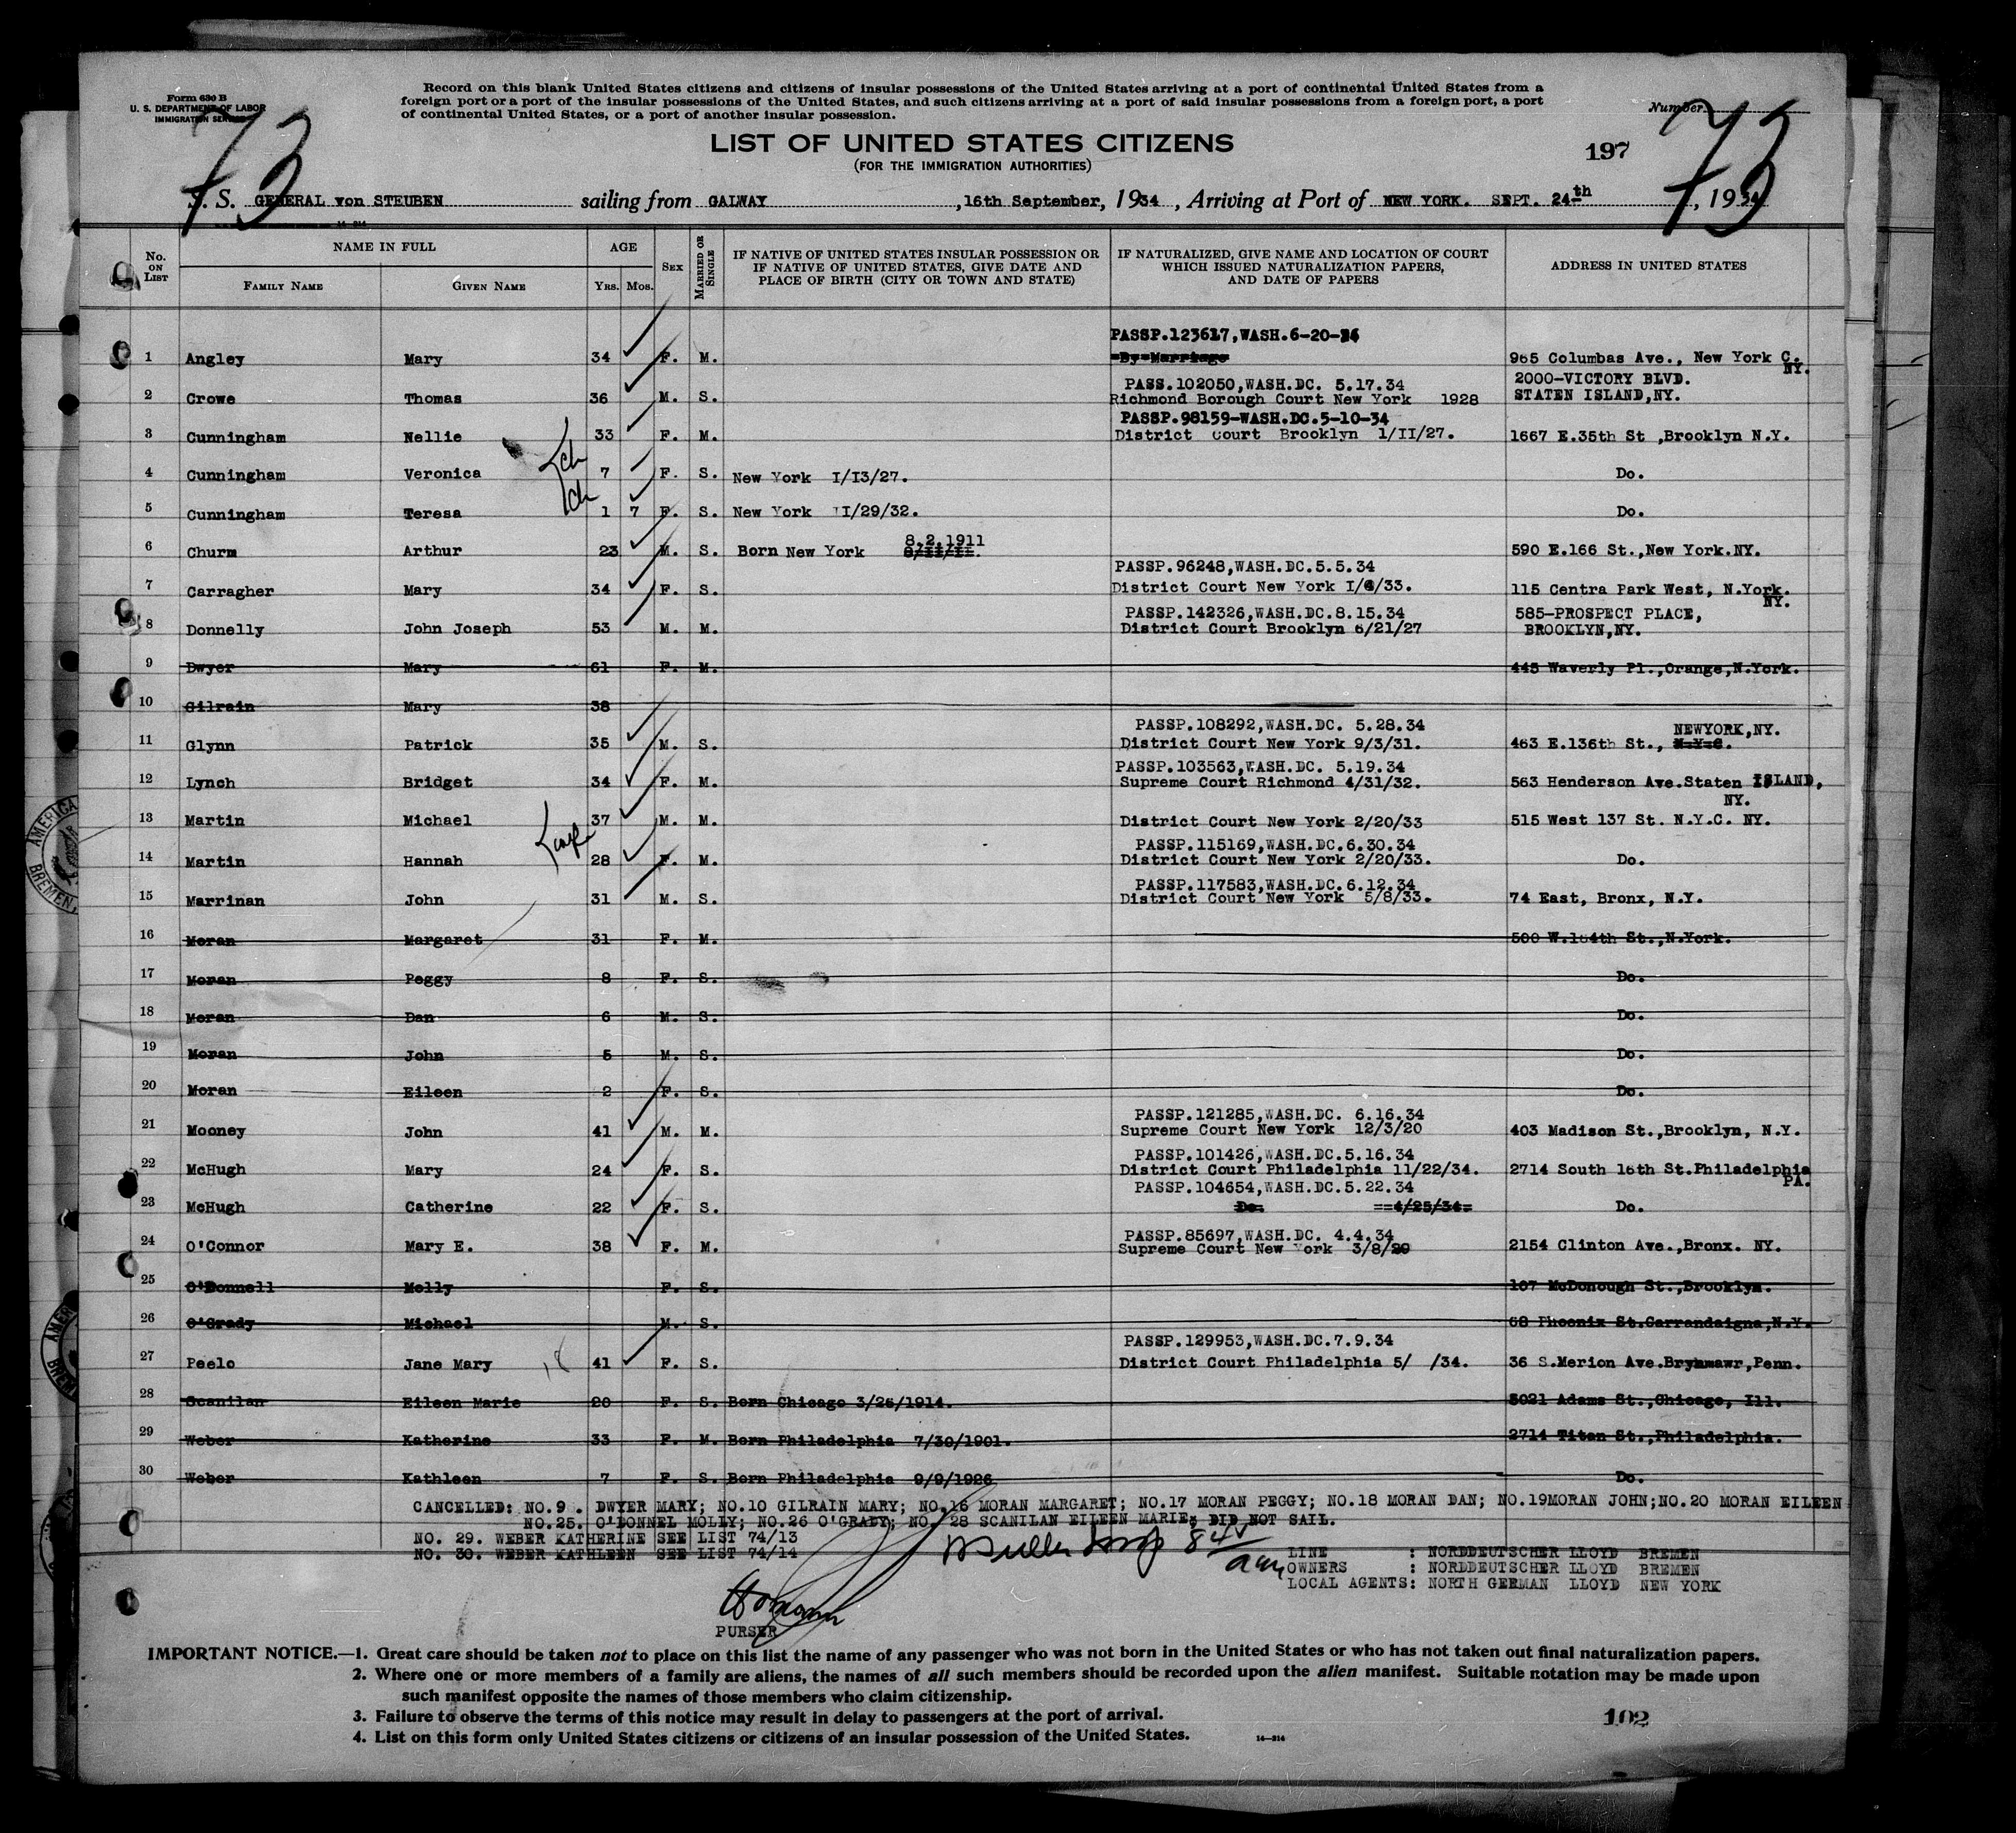 Form 630 B
U. S. DEPARTMENT OF LABOR
IMMIGRATION SERVICE
Record on this blank United States citizens and citizens of insular possessions of the United States arriving at a port of continental United States from a
foreign port or a port of the insular possessions of the United States, and such citizens arriving at a port of said insular possessions from a foreign port, a port
of continental United States, or a port of another insular possession.
Number
73
73
LIST OF UNITED STATES CITIZENS
(FOR THE IMMIGRATION AUTHORITIES)
197
S. S. GENERAL von STEUBEN sailing from GALWAY ,16th September, 1934 , Arriving at Port of NEW YORK. SEPT. 24-th , 1934
No. ON LIST
NAME IN FULL
FAMILY NAME
GIVEN NAME
AGE
YRS. MOS.
SEX
MARRIED OR SINGLE
IF NATIVE OF UNITED STATES INSULAR POSSESSION OR
IF NATIVE OF UNITED STATES, GIVE DATE AND
PLACE OF BIRTH (CITY OR TOWN AND STATE)
IF NATURALIZED, GIVE NAME AND LOCATION OF COURT
WHICH ISSUED NATURALIZATION PAPERS,
AND DATE OF PAPERS
ADDRESS IN UNITED STATES
PASSP.123617,WASH.6-20-34
1 Angley Mary 34 F. M. By Marriage 965 Columbas Ave., New York C.
NY.
PASS.102050,WASH.DC. 5.17.34 2000-VICTORY BLVD.
2 Crowe Thomas 36 M. S. Richmond Borough Court New York 1928 STATEN ISLAND,NY.
PASSP.98159-WASH.DC.5-10-34
3 Cunningham Nellie 33 F. M. District Court Brooklyn 1/II/27. 1667 E.35th St ,Brooklyn N.Y.
4 Cunningham Veronica 7 F. S. New York I/I3/27. Do.
5 Cunningham Teresa 1 7 F. S. New York II/29/32. Do.
8.2.1911
6 Churm Arthur 23 M. S. Born New York 8/II/II. 590 E.166 St.,New York.NY.
PASSP.96248,WASH.DC.5.5.34
7 Carragher Mary 34 F. S. District Court New York I/4/33. 115 Centra Park West, N.York.
NY.
PASSP.142326,WASH.DC.8.15.34 585-PROSPECT PLACE,
8 Donnelly John Joseph 53 M. M. District Court Brooklyn 6/21/27 BROOKLYN,NY.
9 Dwyer Mary 61 F. M. 445 Waverly Pl.,Orange,N.York.
10 Gilrain Mary 38
PASSP.108292,WASH.DC. 5.28.34 NEWYORK,NY.
11 Glynn Patrick 35 M. S. District Court New York 9/3/31. 463 E.136th St., N.Y.C.
PASSP.103563,WASH.DC. 5.19.34
12 Lynch Bridget 34 F. M. Supreme Court Richmond 4/31/32. 563 Henderson Ave.Staten ISLAND,
NY.
13 Martin Michael 37 M. M. District Court New York 2/20/33 515 West 137 St. N.Y.C. NY.
PASSP.115169,WASH.DC.6.30.34
14 Martin Hannah 28 F. M. District Court New York 2/20/33. Do.
PASSP.117583,WASH.DC.6.12.34
15 Marrinan John 31 M. S. District Court New York 5/8/33. 74 East, Bronx, N.Y.
16 Moran Margaret 31 F. M. 500 W.164th St.,N.York.
17 Moran Peggy 8 F. S. Do.
18 Moran Dan 6 M. S. Do.
19 Moran John 5 M. S. Do.
20 Moran Eileen 2 F. S. Do.
PASSP.121285,WASH.DC. 6.16.34
21 Mooney John 41 M. M. Supreme Court New York 12/3/20 403 Madison St.,Brooklyn, N.Y.
PASSP.101426,WASH.DC.5.16.34
22 McHugh Mary 24 F. S. District Court Philadelphia 11/22/34. 2714 South 16th St.Philadelphia
PA.
PASSP.104654,WASH.DC.5.22.34
23 McHugh Catherine 22 F. S. Do. 4/25/34 Do.
PASSP.85697,WASH.DC. 4.4.34
24 O'Connor Mary E. 38 F. M. Supreme Court New York 3/8/29 2154 Clinton Ave.,Bronx. NY.
25 O'Donnell Molly F. S. 107 McDonough St.,Brooklyn.
26 O'Grady Michael M. S. 68 Phoenix St.Carrandaigna,N.Y.
PASSP.129953,WASH.DC.7.9.34
27 Peelo Jane Mary 41 F. S. District Court Philadelphia 5/ /34. 36 S.Merion Ave.Brynmawr,Penn.
28 Scanilan Eileen Marie 20 F. S. Born Chicago 3/26/1914. 5021 Adams St.,Chicago, Ill.
29 Weber Katherine 33 F. M. Born Philadelphia 7/30/1901. 2714 Titan St.,Philadelphia.
30 Weber Kathleen 7 F. S. Born Philadelphia 9/9/1926 Do.
CANCELLED: NO.9 . DWYER MARY; NO.10 GILRAIN MARY; NO.16 MORAN MARGARET; NO.17 MORAN PEGGY; NO.18 MORAN DAN; NO.19MORAN JOHN;NO.20 MORAN EILEEN
NO.25. O'DONNEL MOLLY; NO.26 O'GRADY; NO. 28 SCANILAN EILEEN MARIE; DID NOT SAIL.
NO. 29. WEBER KATHERINE SEE LIST 74/13
NO. 30. WEBER KATHLEEN SEE LIST 74/14
LINE : NORDDEUTSCHER LLOYD BREMEN
OWNERS : NORDDEUTSCHER LLOYD BREMEN
LOCAL AGENTS: NORTH GERMAN LLOYD NEW YORK
PURSER
IMPORTANT NOTICE.—1. Great care should be taken not to place on this list the name of any passenger who was not born in the United States or who has not taken out final naturalization papers.
2. Where one or more members of a family are aliens, the names of all such members should be recorded upon the alien manifest. Suitable notation may be made upon
such manifest opposite the names of those members who claim citizenship.
3. Failure to observe the terms of this notice may result in delay to passengers at the port of arrival.
4. List on this form only United States citizens or citizens of an insular possession of the United States.
14—214
102